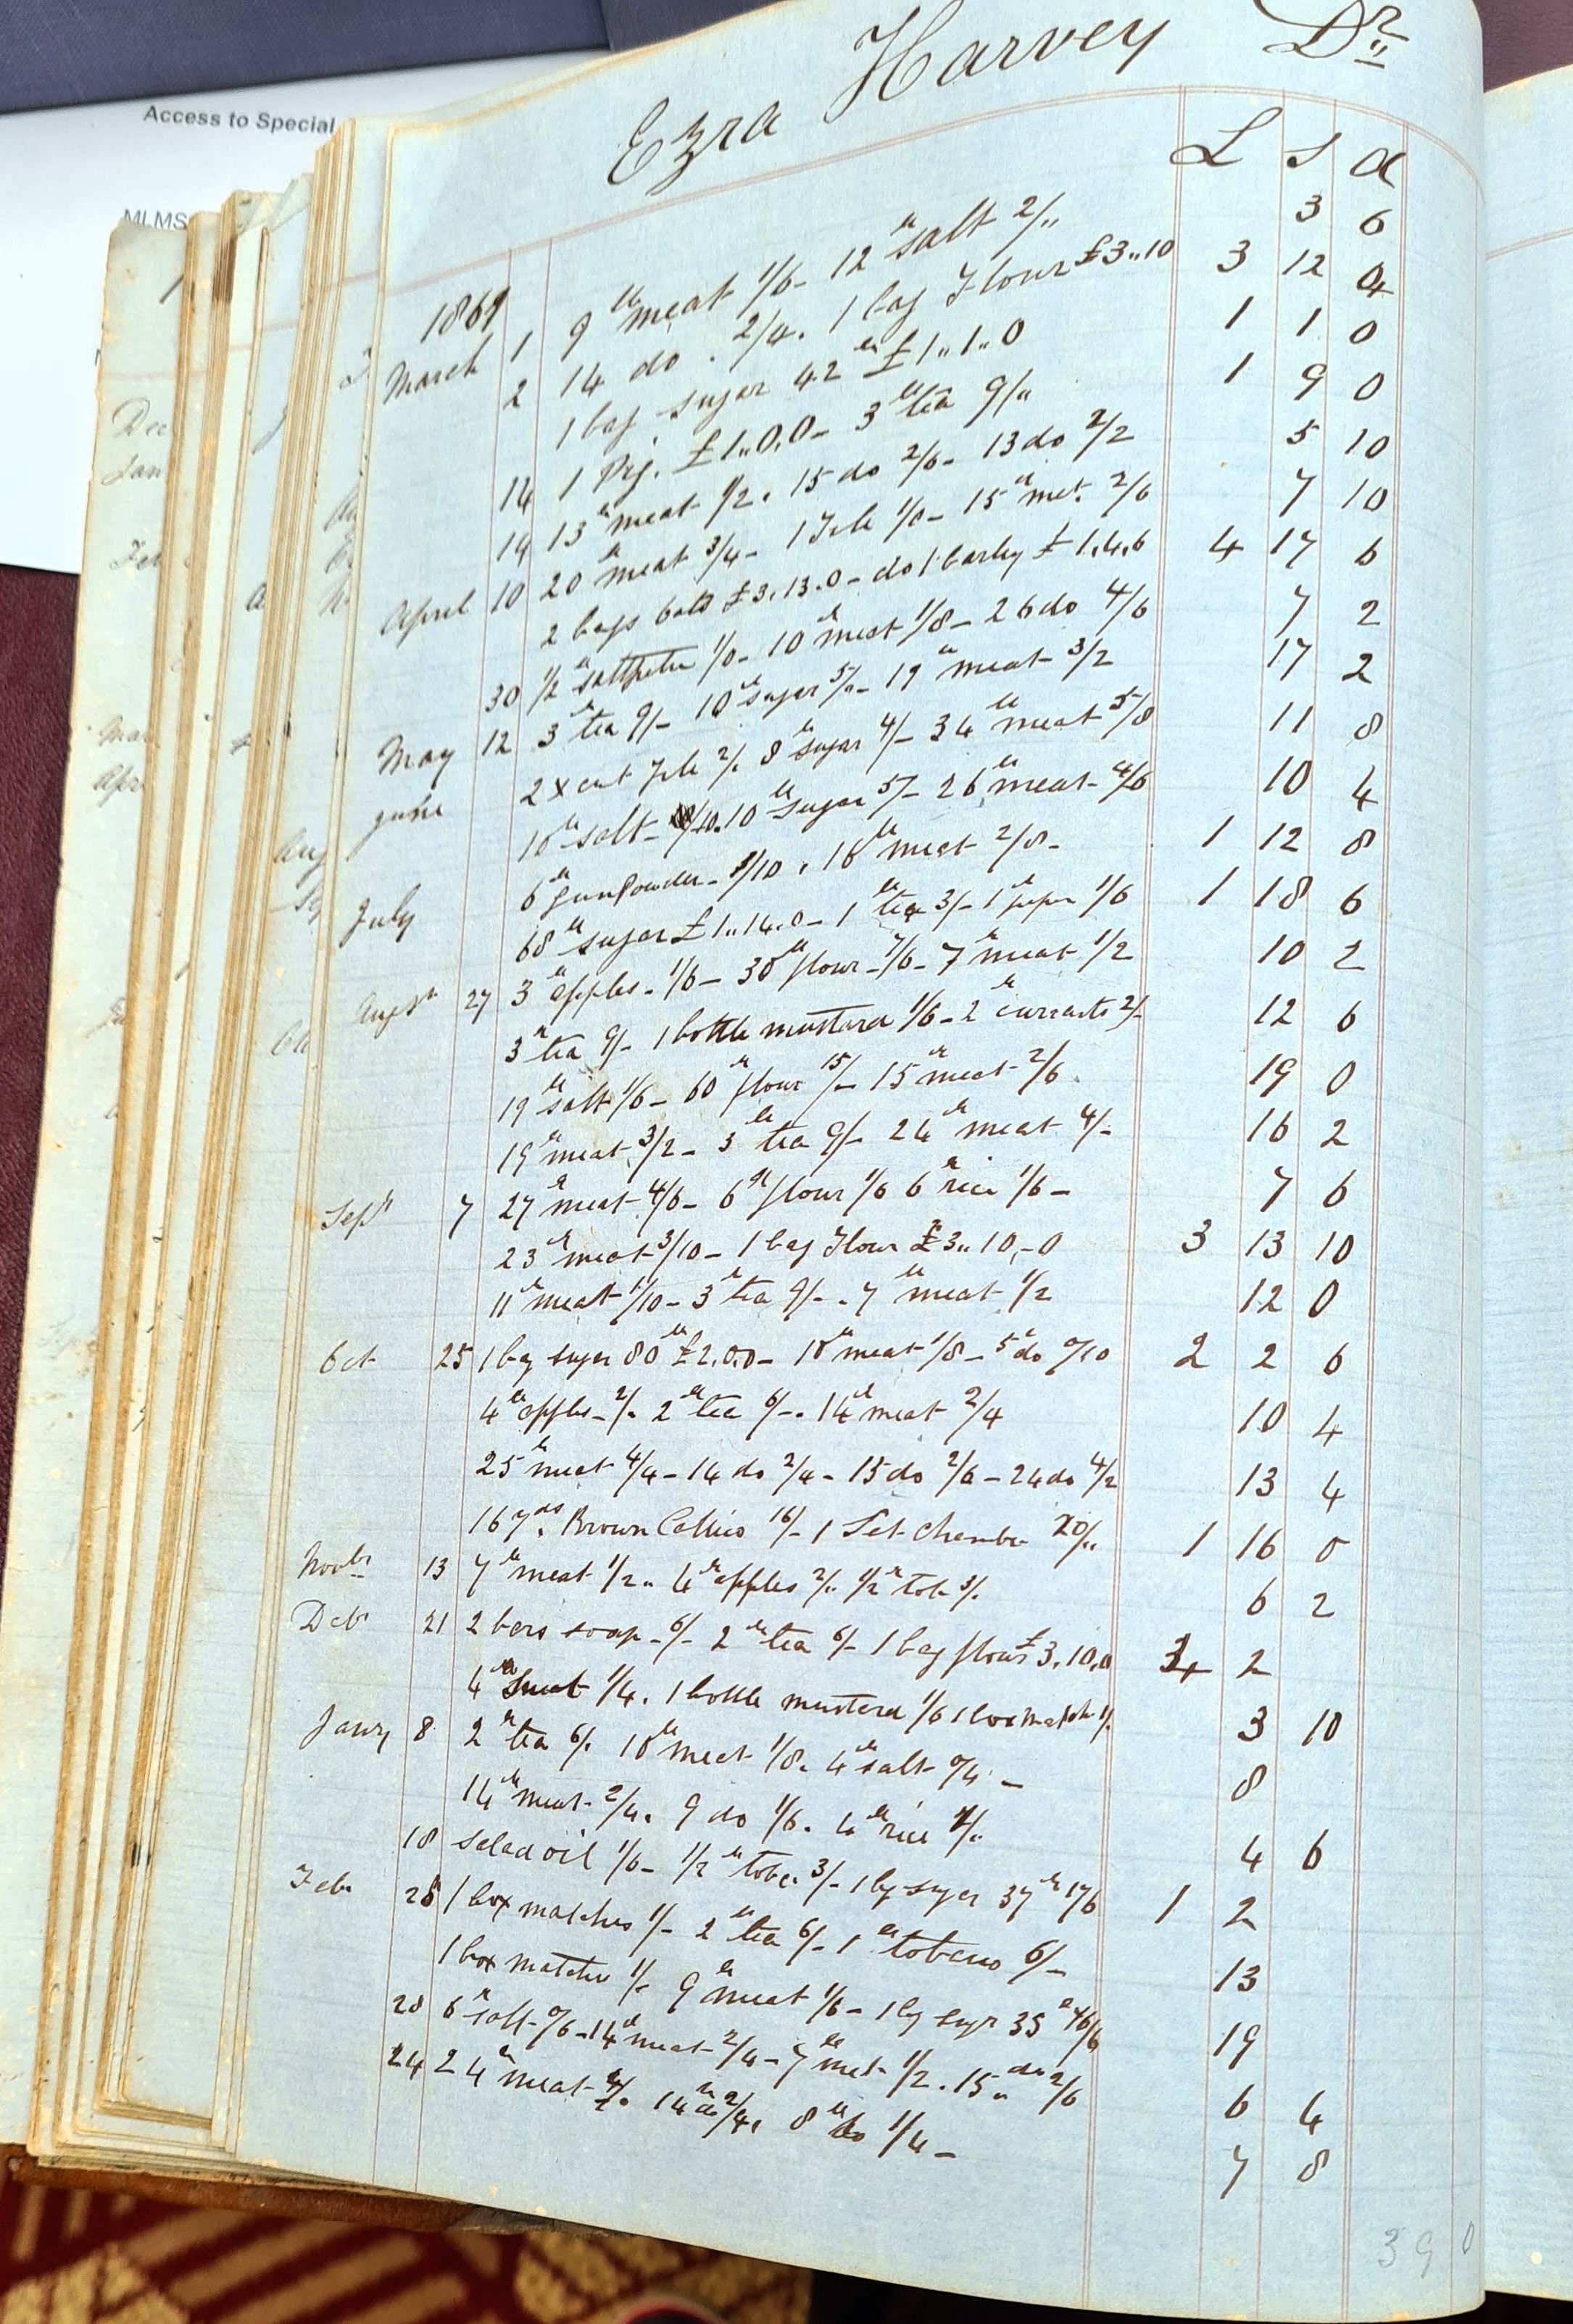 Access to Special
MLMS
Ezra Harvey Dr
L s d
1869
March 1 9 lb meat 1/6 - 12 lb salt 2/" 3 6
2 14 do . 2/4 . 1 bag Flour £3"10 3 12 4
1 bag sugar 42 lb £1"1"0 1 1 0
14 1 Pig . £1"0.0 - 3 lb tea 9/" 1 9 0
14 13 lb meat 1/2 . 15 do 2/6 - 13 do 2/2 5 10
April 10 20 lb meat 3/4 - 1 File 1/0 - 15 lb met . 2/6 7 10
2 bags oats £3.13.0 - do 1 barley £1.4.6 4 17 6
30 1/2 lb saltpetre 1/0 - 10 lb meat 1/8 - 26 do 4/6 7 2
May 12 3 lb tea 9/- 10 lb sugar 5/- - 19 lb meat 3/2 17 2
June 2 x cut File 2/. 8 lb sugar 4/- 34 lb meat 5/8 11 8
10 lb salt - /10 . 10 lb sugar 5/- 26 lb meat - 4/6 10 4
July 6 lb gunpowder - /10 . 16 lb meat 2/8 - 1 12 8
68 lb sugar £1"14.0 - 1 lb tea 3/- 1 lb 1/6 1 18 6
Augst 27 3 lb apples - 1/6 - 30 lb flour - 7/6 - 7 lb meat 1/2 10 2
3 lb tea 9/- 1 bottle mustard 1/6 - 2 lb currants 2/- 12 6
19 lb salt 1/6 - 60 lb flour 15/- 15 lb meat - 2/6 19 0
19 lb meat 3/2 - 3 lb tea 9/- 24 lb meat 4/- 16 2
Sept 7 27 lb meat 4/6 - 6 lb flour 1/6 6 lb rice 1/6 - 7 6
23 lb meat 3/10 - 1 bag Flour £3"10"0 3 13 10
11 lb meat 1/10 - 3 lb tea 9/- . 7 lb meat 1/2 12 0
Oct 25 1 bag suger 80 lb £2.0.0 - 10 lb meat 1/8 - 5 lb do 0/10 2 2 6
4 lb apples - 2/. 2 lb tea 6/- . 14 lb meat 2/4 10 4
25 lb meat 4/4 - 14 do 2/4 - 15 do 2/6 - 24 do 4/2 13 4
16 yds . Brown Callico 16/- 1 Set Chamber 20/" 1 16 0
Novbr 13 7 lb meat 1/2 " 4 lb apples 2/. 1/2 lb tob. 3/. 6 2
Decbr 21 2 bars soap - 6/- 2 lb tea 6/- 1 bag flour £3.10.0 4 2
4 lb suet 1/4 . 1 bottle mustard 1/6 1 box match 1/. 3 10
Janry 8 2 lb tea 6/. 10 lb meat 1/8 . 4 lb salt 0/4 - 8
14 lb meat - 2/4 . 9 do 1/6 . lb rice /. 4 6
18 salad oil 1/6 - 1/2 lb tobc. 3/- 1 bg suger 37 lb 17/6 1 2
Feb. 25 1 box matches 1/- 2 lb tea 6/- 1 lb tobacco 6/- 13
1 box matches 1/- 9 lb meat 1/6 - 1 bg sugr 35 lb 16/6 19
20 6 lb salt - 0/6 - 14 lb meat 2/4 - 7 lb meat 1/2 . 15 lb do 2/6 6 4
24 24 lb meat 4/. 14 lb do 2/4 . 8 lb do 1/4 - 7 8
390